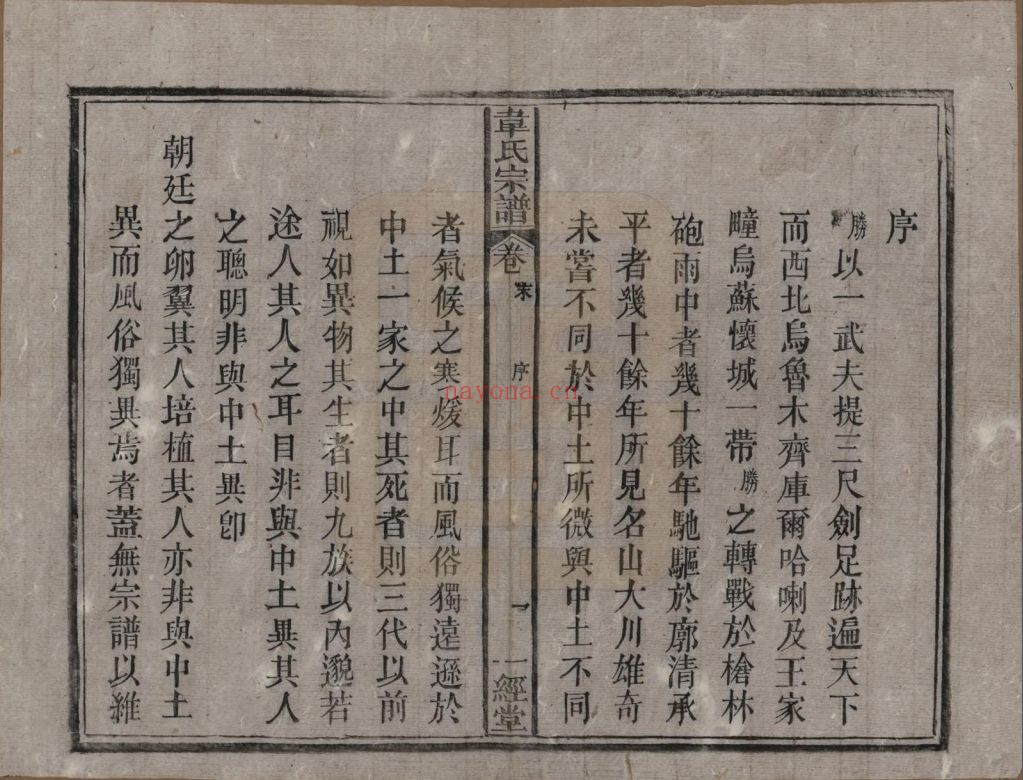 序
勝以一武夫提三尺劍足跡遍天下
而西北烏魯木齊庫爾哈喇及王家
疃烏蘇懷城一帶勝之轉戰於槍林
砲雨中者幾十餘年馳驅於廓清承
平者幾十餘年所見名山大川雄奇
未嘗不同於中土所微與中土不同
韋氏宗譜
卷末
序
一
一經堂
者氣候之寒煖耳而風俗獨遠遜於
中土一家之中其死者則三代以前
視如異物其生者則九族以內邈若
途人其人之耳目非與中土異其人
之聰明非與中土異卽
朝廷之卵翼其人培植其人亦非與中土
異而風俗獨異焉者蓋無宗譜以維
nayona.cn